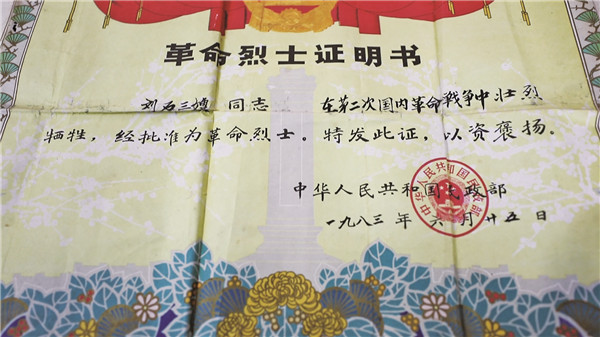 革命烈士证明书
刘石三嫂 同志 在第二次国内革命战争中壮烈
牺牲，经批准为革命烈士。特发此证，以资褒扬。
中华人民共和国民政部
一九八三年 六月廿五日
中华人民共和国民政部